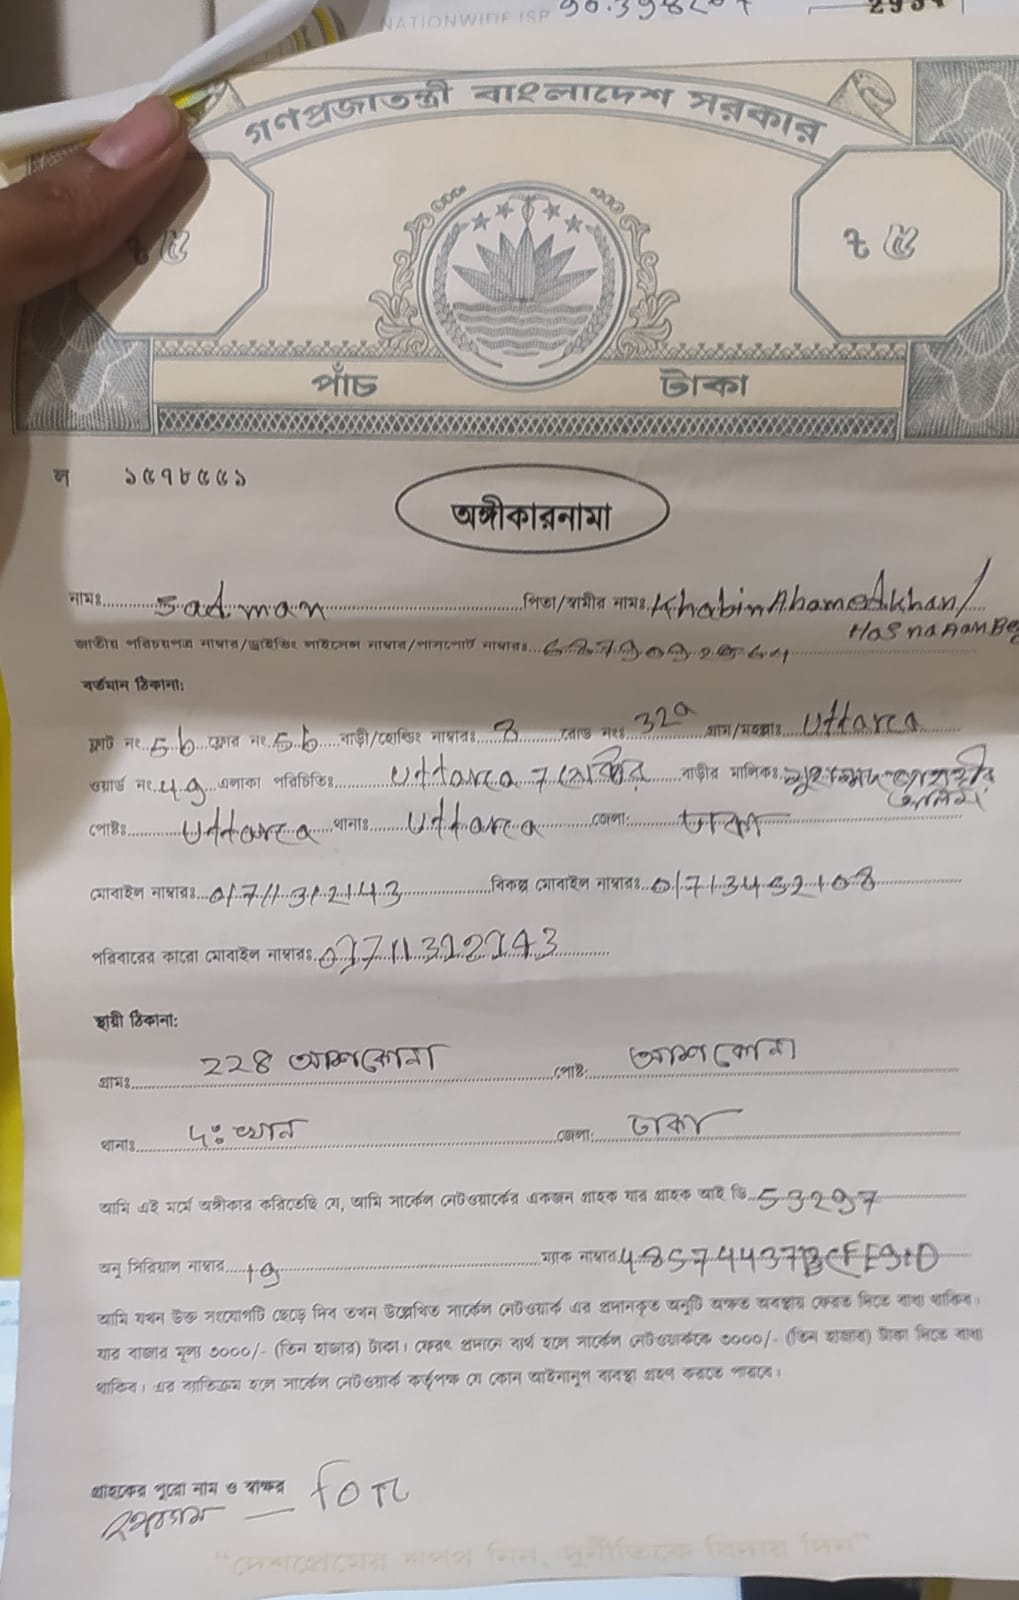 NATIONWIDE ISP
গণপ্রজাতন্ত্রী বাংলাদেশ সরকার
৳ ৫ ৳ ৫
পাঁচ টাকা
ল ১৫৭৮৫৫১
অঙ্গীকারনামা
নামঃ Sadman পিতা/স্বামীর নামঃ Khabir Ahamed khan/
জাতীয় পরিচয়পত্র নাম্বার/ড্রাইভিং লাইসেন্স নাম্বার/পাসপোর্ট নাম্বারঃ
বর্তমান ঠিকানা:
ফ্লাট নং 5b ফ্লোর নং 5b বাড়ী/হোল্ডিং নাম্বারঃ 8 রোড নংঃ 32a গ্রাম/মহল্লাঃ Uttara
ওয়ার্ড নং 49 এলাকা পরিচিতিঃ Uttara 7 সেক্টর বাড়ীর মালিকঃ
পোষ্টঃ Uttara থানাঃ Uttara জেলা: ঢাকা
মোবাইল নাম্বারঃ 01711312143 বিকল্প মোবাইল নাম্বারঃ
পরিবারের কারো মোবাইল নাম্বারঃ 01711312143
স্থায়ী ঠিকানা:
গ্রামঃ 228 আশকোনা পোষ্ট: আশকোনা
থানাঃ দঃ খান জেলা: ঢাকা
আমি এই মর্মে অঙ্গীকার করিতেছি যে, আমি সার্কেল নেটওয়ার্কের একজন গ্রাহক যার গ্রাহক আই ডি 53297
অনু সিরিয়াল নাম্বার 19 ম্যাক নাম্বার
আমি যখন উক্ত সংযোগটি ছেড়ে দিব তখন উল্লেখিত সার্কেল নেটওয়ার্ক এর প্রদানকৃত অনুটি অক্ষত অবস্থায় ফেরত দিতে বাধ্য থাকিব।
যার বাজার মূল্য ৩০০০/- (তিন হাজার) টাকা। ফেরৎ প্রদানে ব্যর্থ হলে সার্কেল নেটওয়ার্ককে ৩০০০/- (তিন হাজার) টাকা দিতে বাধ্য
থাকিব। এর ব্যতিক্রম হলে সার্কেল নেটওয়ার্ক কর্তৃপক্ষ যে কোন আইনানুগ ব্যবস্থা গ্রহণ করতে পারবে।
গ্রাহকের পুরো নাম ও স্বাক্ষর
"দেশপ্রেমের শপথ নিন, দুর্নীতিকে বিদায় দিন"